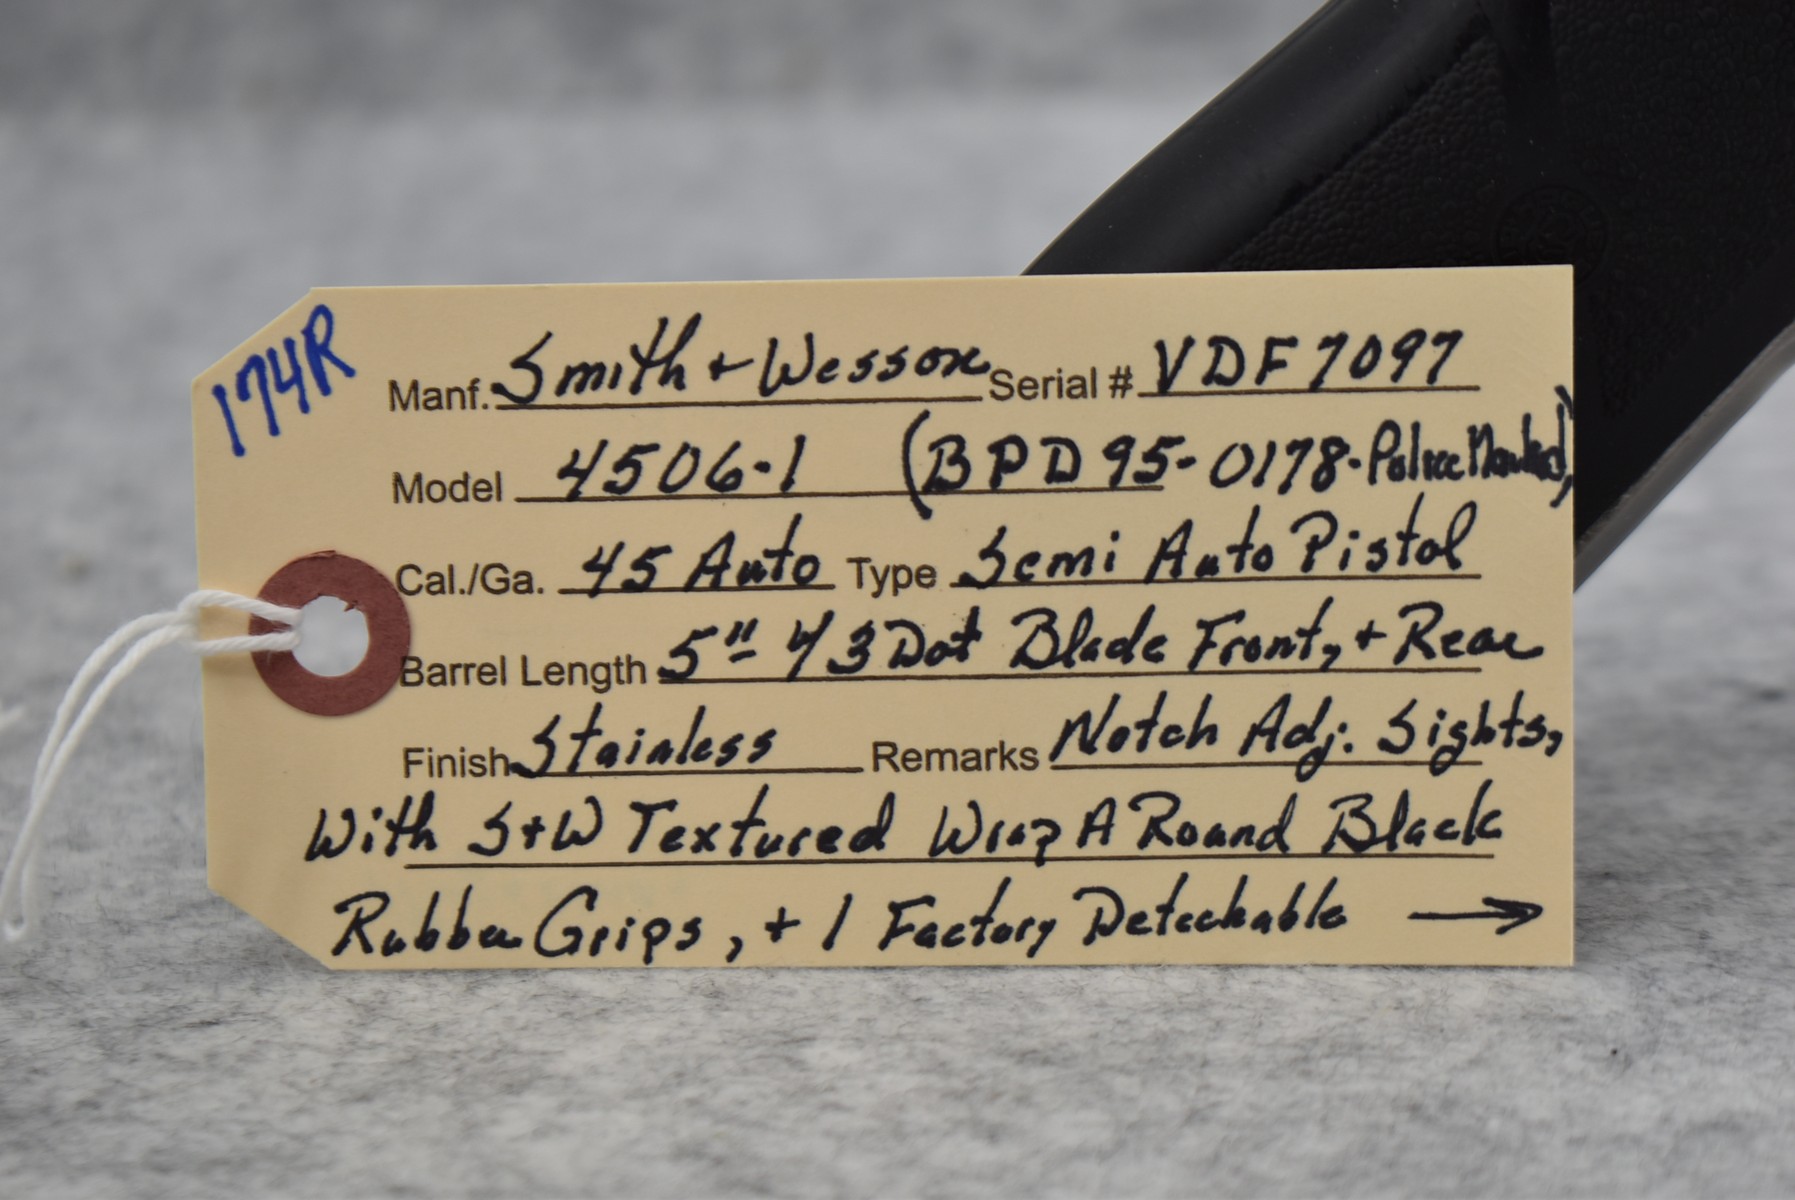 174R
Manf. Smith + Wesson Serial # VDF7097
Model 4506-1 (BPD 95-0178-Police Marked),
Cal./Ga. 45 Auto Type Semi Auto Pistol
Barrel Length 5" W/ 3 Dot Blade Front, + Rear
Finish Stainless Remarks Notch Adj. Sights,
With S+W Textured Wrap A Round Black
Rubber Grips, + 1 Factory Detechable →